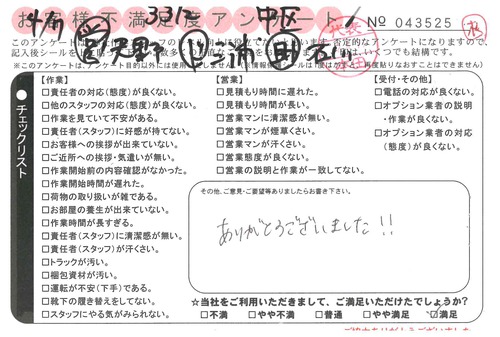 お客様不満足度アンケート
No 043525
【作業】
□責任者の対応(態度)が良くない。
□他のスタッフの対応(態度)が良くない。
□作業を見ていて不安がある。
□責任者(スタッフ)に好感が持てない。
□お客様への挨拶が出来ていない。
□ご近所への挨拶・気遣いが無い。
□作業開始前の内容確認がなかった。
□作業開始時間が遅れた。
□荷物の取り扱いが雑である。
□お部屋の養生が出来ていない。
□作業時間が長すぎる。
□責任者(スタッフ)に清潔感が無い。
□責任者(スタッフ)が汗くさい。
□トラックが汚い。
□梱包資材が汚い。
□運転が不安(下手)である。
□靴下の履き替えをしてない。
□スタッフにやる気がみられない。
【営業】
□見積もり時間に遅れた。
□見積もり時間が長い。
□営業マンに清潔感が無い。
□営業マンが煙草くさい。
□営業マンが汗くさい。
□営業態度が良くない。
□営業の説明と作業が一致してない。
【受付・その他】
□電話の対応が良くない。
□オプション業者の説明
・作業が良くない。
□オプション業者の対応
(態度)が良くない。
チェックリスト
その他、ご意見・ご要望等ありましたらお書き下さい。
ありがとうございました!!
☆当社をご利用いただきまして、ご満足いただけたでしょうか?
□不満 □やや不満 □普通 □やや満足 ☑満足